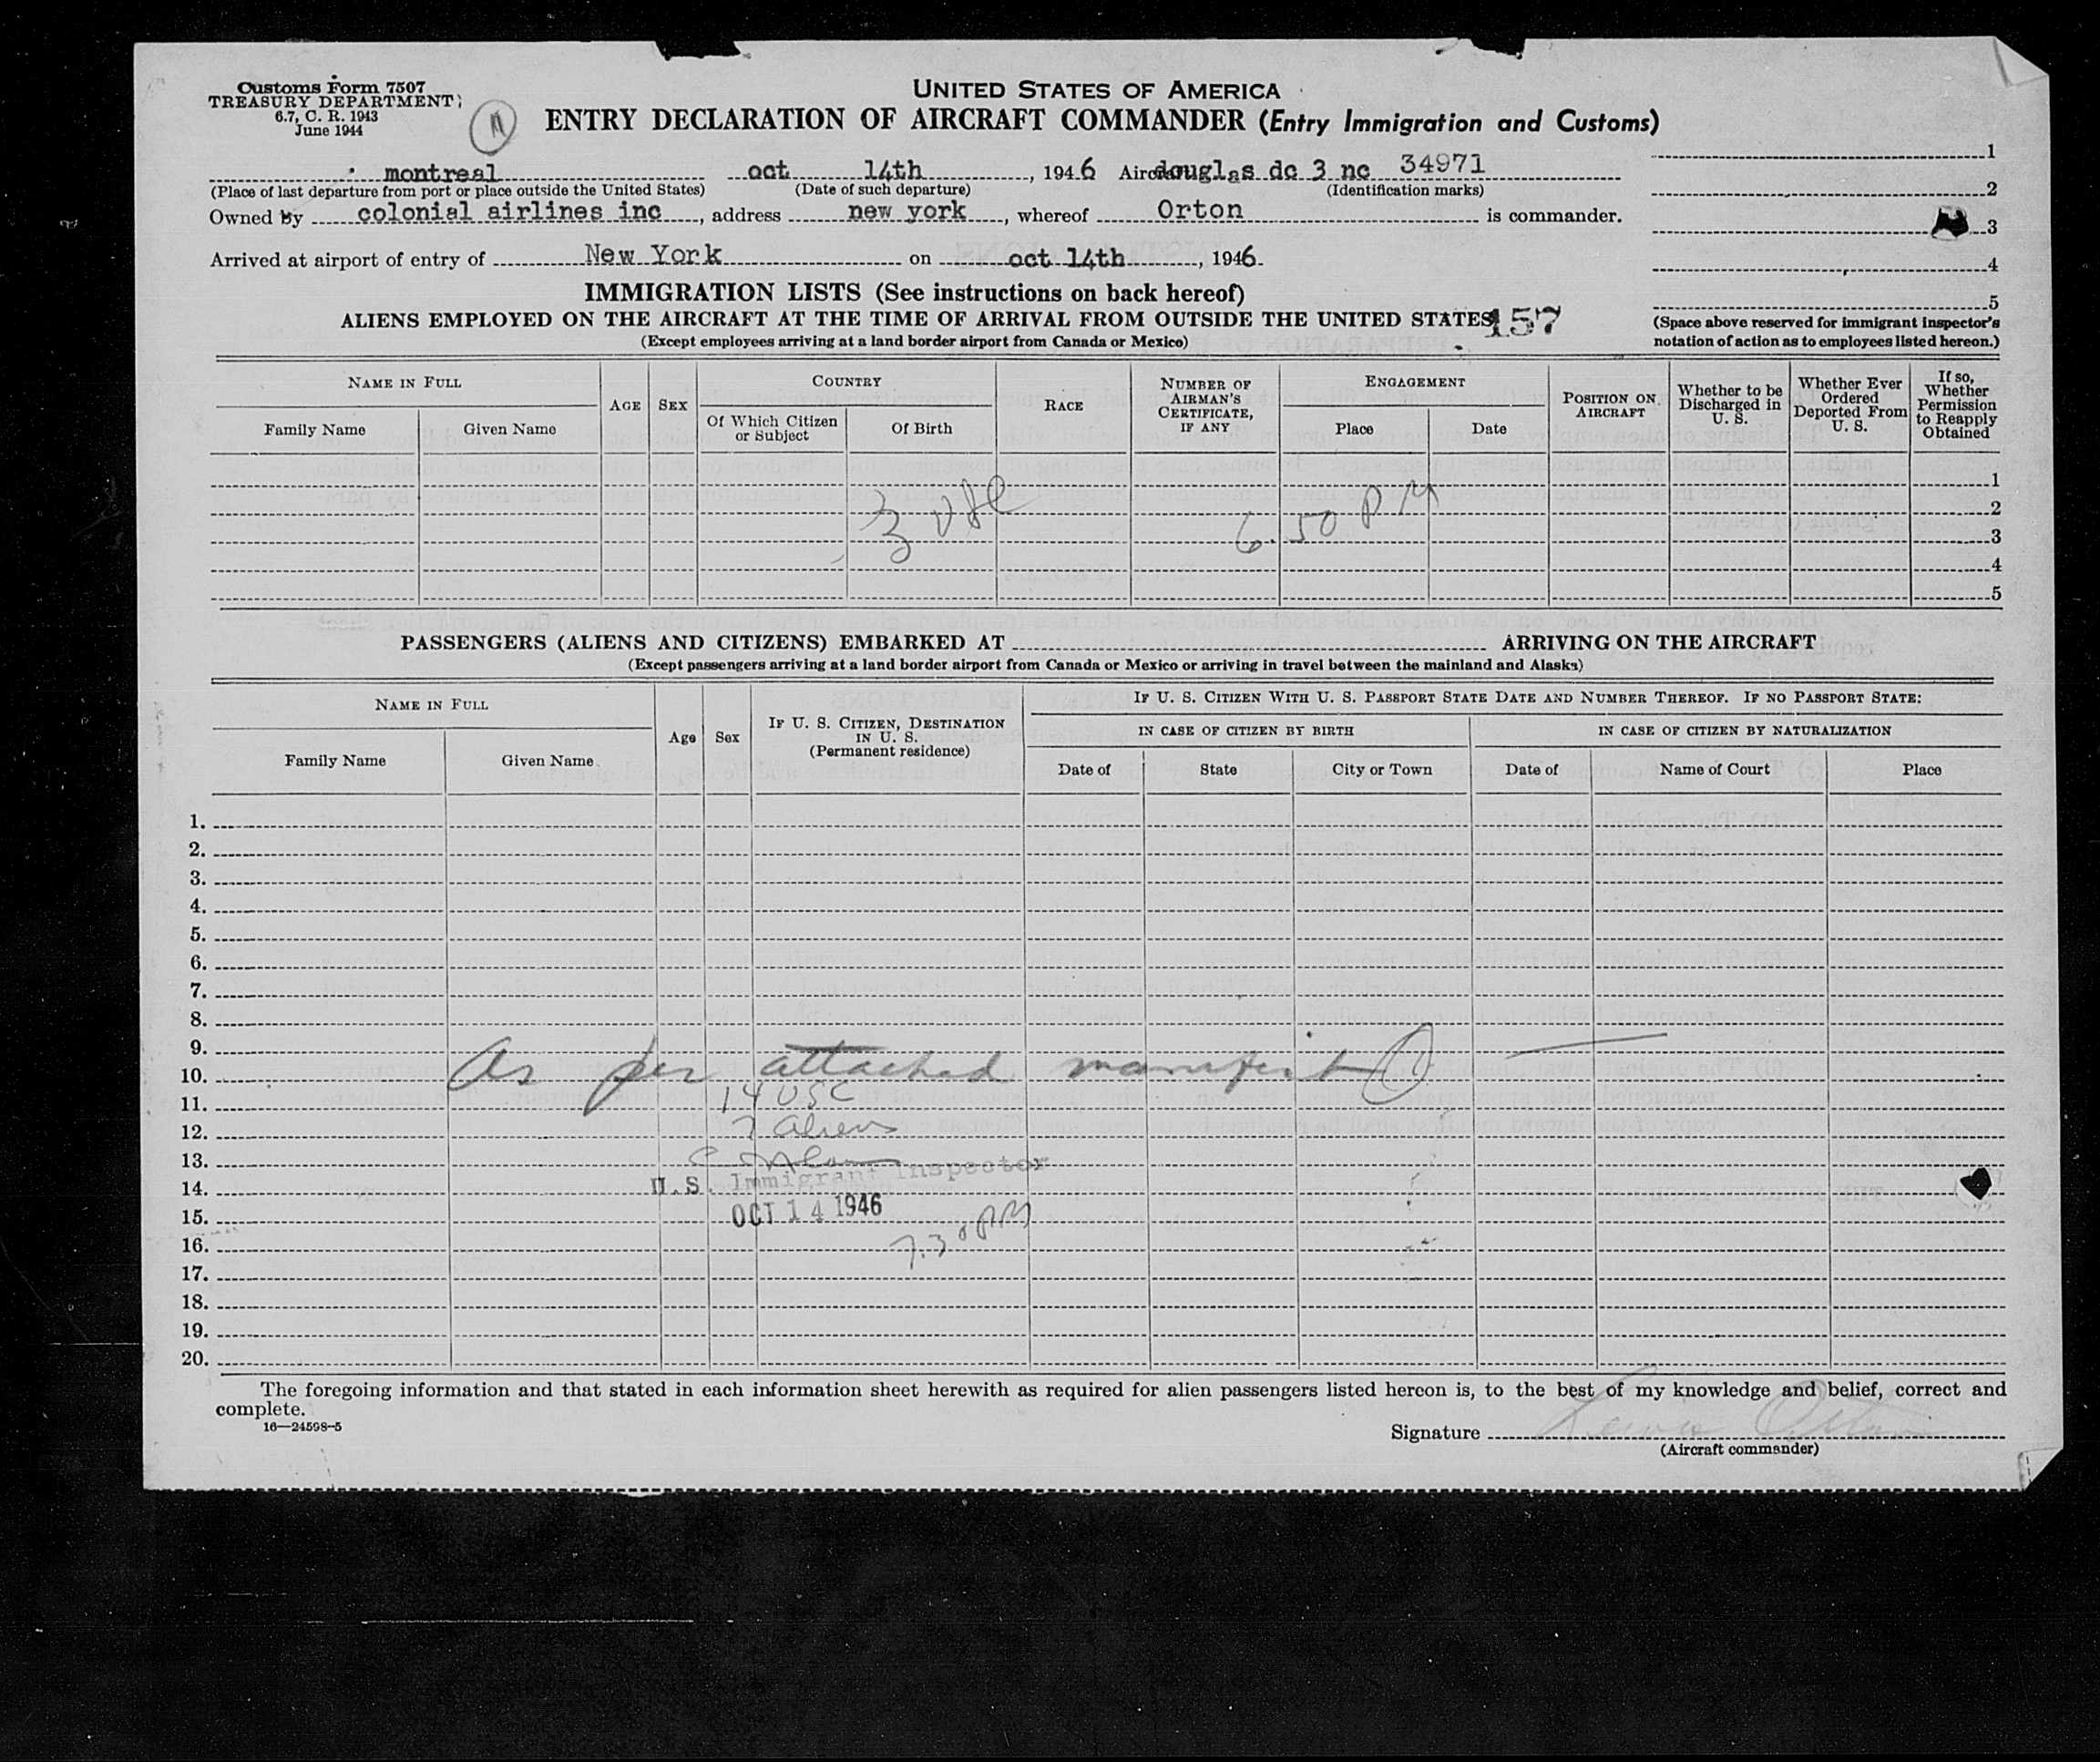 Customs Form 7507
TREASURY DEPARTMENT
6.7, C. R. 1943
June 1944
UNITED STATES OF AMERICA
ENTRY DECLARATION OF AIRCRAFT COMMANDER (Entry Immigration and Customs)
montreal oct 14th, 1946 Aircr douglas dc 3 nc 34971
(Place of last departure from port or place outside the United States) (Date of such departure) (Identification marks)
Owned by colonial airlines inc, address new york, whereof Orton is commander.
Arrived at airport of entry of New York on oct 14th, 1946.
1
2
3
4
5
(Space above reserved for immigrant inspector's
notation of action as to employees listed hereon.)
IMMIGRATION LISTS (See instructions on back hereof)
ALIENS EMPLOYED ON THE AIRCRAFT AT THE TIME OF ARRIVAL FROM OUTSIDE THE UNITED STATES 157
(Except employees arriving at a land border airport from Canada or Mexico)
NAME IN FULL
Family Name
Given Name
AGE
SEX
COUNTRY
Of Which Citizen
or Subject
Of Birth
RACE
NUMBER OF
AIRMAN'S
CERTIFICATE,
IF ANY
ENGAGEMENT
Place
Date
POSITION ON
AIRCRAFT
Whether to be
Discharged in
U. S.
Whether Ever
Ordered
Deported From
U. S.
If so,
Whether
Permission
to Reapply
Obtained
1
2
3
4
5
3 USC
6.50 PM
PASSENGERS (ALIENS AND CITIZENS) EMBARKED AT ARRIVING ON THE AIRCRAFT
(Except passengers arriving at a land border airport from Canada or Mexico or arriving in travel between the mainland and Alaska)
NAME IN FULL
Family Name
Given Name
Age
Sex
IF U. S. CITIZEN, DESTINATION
IN U. S.
(Permanent residence)
IF U. S. CITIZEN WITH U. S. PASSPORT STATE DATE AND NUMBER THEREOF. IF NO PASSPORT STATE:
IN CASE OF CITIZEN BY BIRTH
IN CASE OF CITIZEN BY NATURALIZATION
Date of
State
City or Town
Date of
Name of Court
Place
1.
2.
3.
4.
5.
6.
7.
8.
9.
10. As per attached manifest
11. 14 USC
12. 7 aliens
13.
14. U.S. Immigrant Inspector
15. OCT 14 1946
16. 7.30 PM
17.
18.
19.
20.
The foregoing information and that stated in each information sheet herewith as required for alien passengers listed hereon is, to the best of my knowledge and belief, correct and
complete.
16—24598-5
Signature Lewis Orton
(Aircraft commander)